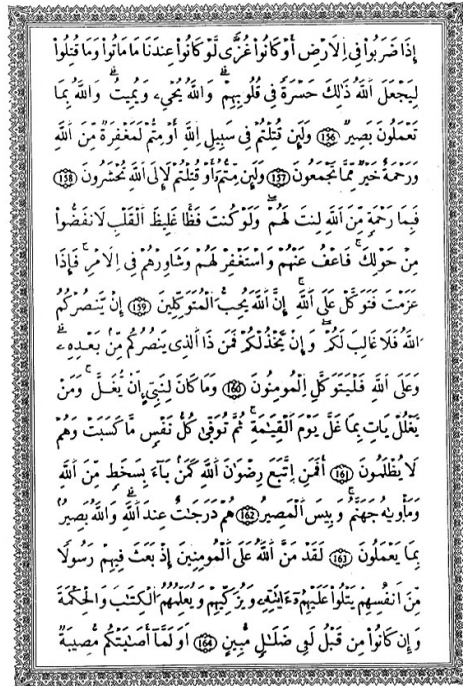 إِذَا ضَرَبُوا۟ فِى اِ۬لَارْضِ أَوْ كَانُوا۟ غُزّىً لَّوْ كَانُوا۟ عِندَنَا مَا مَاتُوا۟ وَمَا قُتِلُوا۟
لِيَجْعَلَ اَ۬للَّهُ ذَٰلِكَ حَسْرَةً فِى قُلُوبِهِمْ وَاللَّهُ يُحْىِۦ وَيُمِيتُ وَاللَّهُ بِمَا
تَعْمَلُونَ بَصِيرٌ 156 وَلَئِن قُتِلْتُمْ فِى سَبِيلِ اِ۬للَّهِ أَوْ مِتُّمْ لَمَغْفِرَةٌ مِّنَ اَ۬للَّهِ
وَرَحْمَةٌ خَيْرٌ مِّمَّا تَجْمَعُونَ 157 وَلَئِن مِّتُّمُۥٓ أَوْ قُتِلْتُمْ لَإِلَى اَ۬للَّهِ تُحْشَرُونَ 158
فَبِمَا رَحْمَةٍ مِّنَ اَ۬للَّهِ لِنتَ لَهُمْ وَلَوْ كُنتَ فَظّاً غَلِيظَ اَ۬لْقَلْبِ لَانفَضُّوا۟
مِنْ حَوْلِكَ فَاعْفُ عَنْهُمْ وَاسْتَغْفِرْ لَهُمْ وَشَاوِرْهُمْ فِى اِ۬لَامْرِ فَإِذَا
عَزَمْتَ فَتَوَكَّلْ عَلَى اَ۬للَّهِ إِنَّ اَ۬للَّهَ يُحِبُّ اُ۬لْمُتَوَكِّلِينَ 159 إِنْ يَّنصُرْكُمُ
اُ۬للَّهُ فَلَا غَالِبَ لَكُمْ وَإِنْ يَّخْذُلْكُمْ فَمَن ذَا اَ۬لَّذِى يَنصُرُكُم مِّنۢ بَعْدِهِۦ
وَعَلَى اَ۬للَّهِ فَلْيَتَوَكَّلِ اِ۬لْمُومِنُونَ 160 وَمَا كَانَ لِنَبِىٓءٍ اَنْ يُّغَلَّ وَمَنْ
يَّغْلُلْ يَاتِ بِمَا غَلَّ يَوْمَ اَ۬لْقِيَٰمَةِ ثُمَّ تُوَفَّىٰ كُلُّ نَفْسٍ مَّا كَسَبَتْ وَهُمْ
لَا يُظْلَمُونَ 161 أَفَمَنِ اِ۪تَّبَعَ رِضْوَٰنَ اَ۬للَّهِ كَمَنۢ بَآءَ بِسَخَطٍ مِّنَ اَ۬للَّهِ
وَمَأْوٜىٰهُ جَهَنَّمُ وَبِيسَ اَ۬لْمَصِيرُ 162 هُمْ دَرَجَٰتٌ عِندَ اَ۬للَّهِ وَاللَّهُ بَصِيرٌۢ
بِمَا يَعْمَلُونَ 163 لَقَدْ مَنَّ اَ۬للَّهُ عَلَى اَ۬لْمُومِنِينَ إِذْ بَعَثَ فِيهِمْ رَسُولًا
مِّنَ اَنفُسِهِمْ يَتْلُوا۟ عَلَيْهِمُۥٓ ءَايَٰتِهِۦ وَيُزَكِّيهِمْ وَيُعَلِّمُهُمُ اُ۬لْكِتَٰبَ وَالْحِكْمَةَ
وَإِن كَانُوا۟ مِن قَبْلُ لَفِى ضَلَٰلٍ مُّبِينٍ 164 اَوَلَمَّآ أَصَٰبَتْكُم مُّصِيبَةٌ